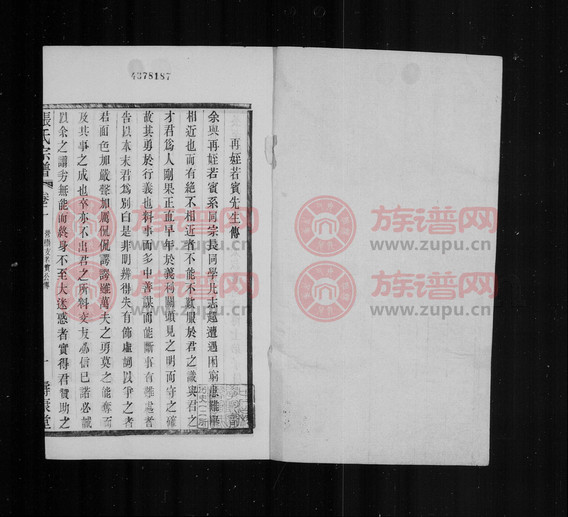 4378187
再姪若賓先生傳
余與再姪若賓系同宗長同學其志趣遭遇困窮患難畢
相近也而有絕不相近者不能不數服於君之識與君之
才君爲人剛果正直早年於義利關頭見之明而守之確
故其勇於行義也料事而多中善謀而能斷事有難處者
告以本末君爲別白是非明辨得失有飾虛詞以爭之者
君面色加嚴聲加厲侃侃諤諤雖萬夫之勇莫之能奪而
及其事之成也卒亦不出君之所料交友必信已諾必誠
以余之謭劣無能而終身不至大迷惑者實得君贊助之
張氏宗譜
卷十
族谱网
www.zupu.cn
族谱网
www.zupu.cn
族谱网
www.zupu.cn
族谱网
www.zupu.cn